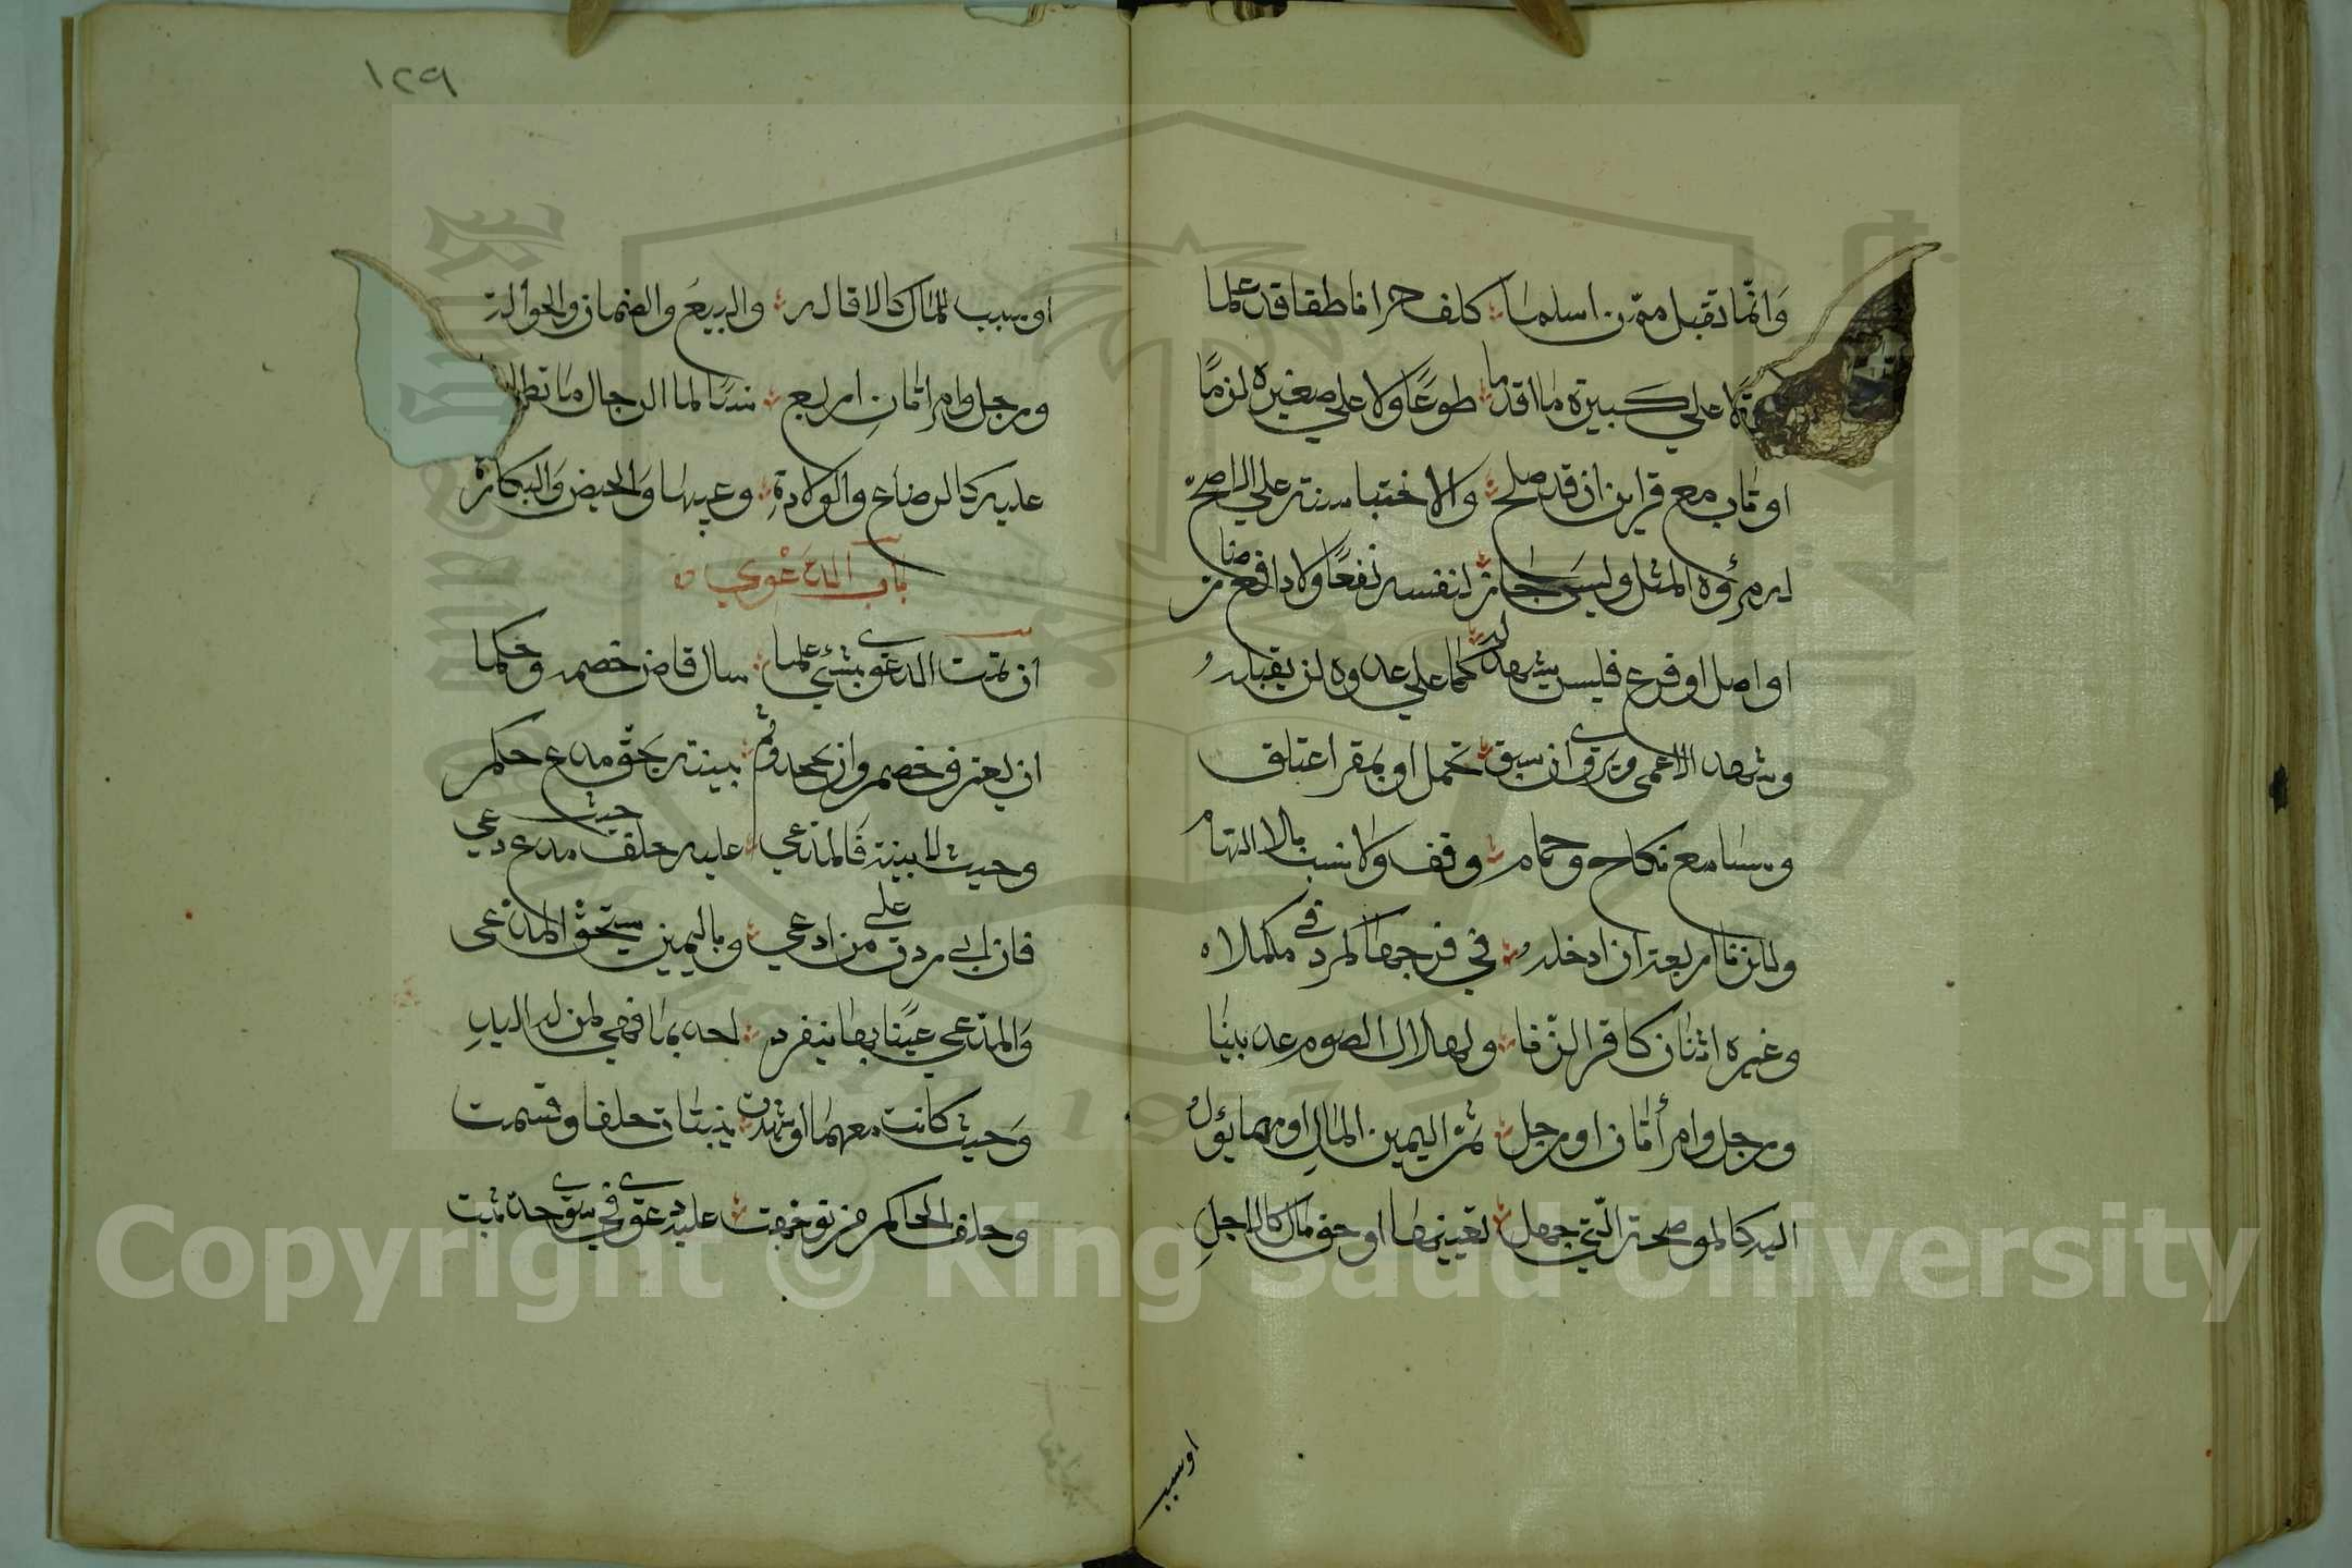 وانّما تقبل ممّن اسلما كلف حرا ناطقا قد علما
علي كبيرة ما اقدما طوعًا ولا علي صغيرة لزمًا
او تاب مع قراين ان قد صلح والاختبا سنة علي الاصح
مرؤة المثل وليس جار لنفسه نفعًا ولا دافع ضار
او اصل او فرع فليس يشهد له كما علي عدوه لن يقبله
وشهد الاعمى ويروى ان سبق تحمل او بمقر اعتلق
وبسامع نكاح وحمام وقف ولا نسب بلا اتهام
وللزنا اربعة ان ادخله في فرجها كمرود في مكحله
وغيره اثنان كاقر الزنا ولهلال الصوم عد بينا
ورجل وامرأتان او رجل ثم اليمين المال او مما يؤل
اليه كالموضحة الّتي جهل تعيينها او حق مال كالاجل
اوسبب
١٢٩
او سبب للمال كالاقاله والبيع والضمان والحواله
ورجل وامراتان اربع نسا لما الرجال ما تطلع
عليه كالرضاع والولادة وعيبها والحيض والبكارة
باب الدعوي
ان تمت الدعوى بشئ علما سال قاض خصمه وحكما
ان يعترف خصم وان يجحد وثم بينة بحق مدع حكم
وحيث لا بينة فالمدعي عليه حلف حيث مدع دعي
فان ابى ردت على من ادعي وباليمين يستحق المدعى
والمدعي عينا بها ينفرد احدهما فهي لمن له اليد
وحيث كانت معهما او شهدت بينتان حلفا وقسمت
وحلف الحاكم من توجهت عليه دعوى في سوى حد ثبت
Copyright © King Saud University